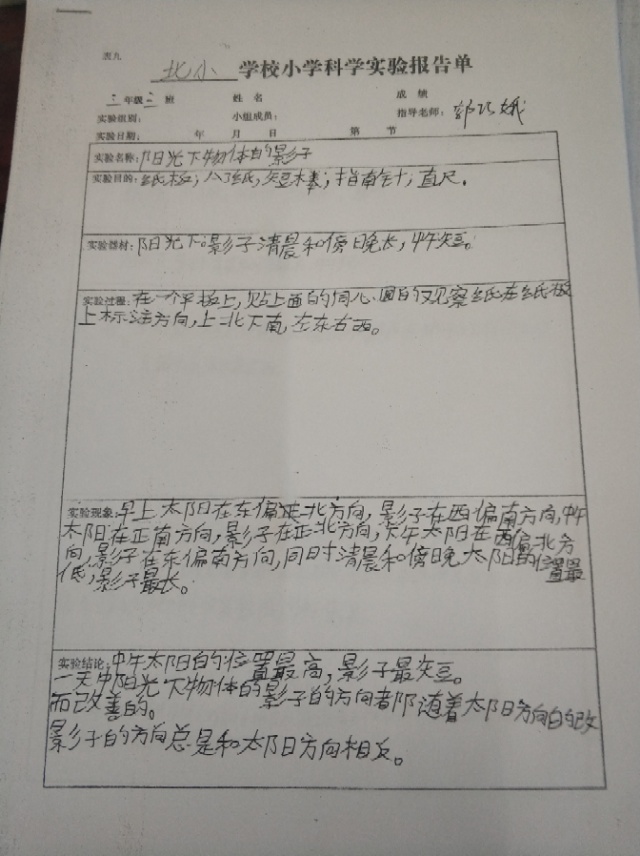 表九
北小 学校小学科学实验报告单
三年级三 班 姓 名 成 绩
实验组别: 小组成员: 指导老师: 郭巧娥
实验日期: 年 月 日 第 节
实验名称:阳光下物体的影子
实验目的:纸板;八丁纸,短木棒;指南针;直尺。
实验器材:阳光下影子清晨和傍晚长,中午短。
实验过程:在一个平板上,贴上画的同心圆的观察纸在纸板
上标注方向,上北下南,左东右西。
实验现象:早上太阳在东偏北方向,影子在西偏南方向,中午
太阳在正南方向,影子在正北方向,下午太阳在西偏北方
向,影子在东偏南方向,同时清晨和傍晚太阳的位置最
低,影子最长。
实验结论:中午太阳的位置最高,影子最短。
一天中阳光下物体的影子的方向都随着太阳方向的改
而改善的。
影子的方向总是和太阳方向相反。